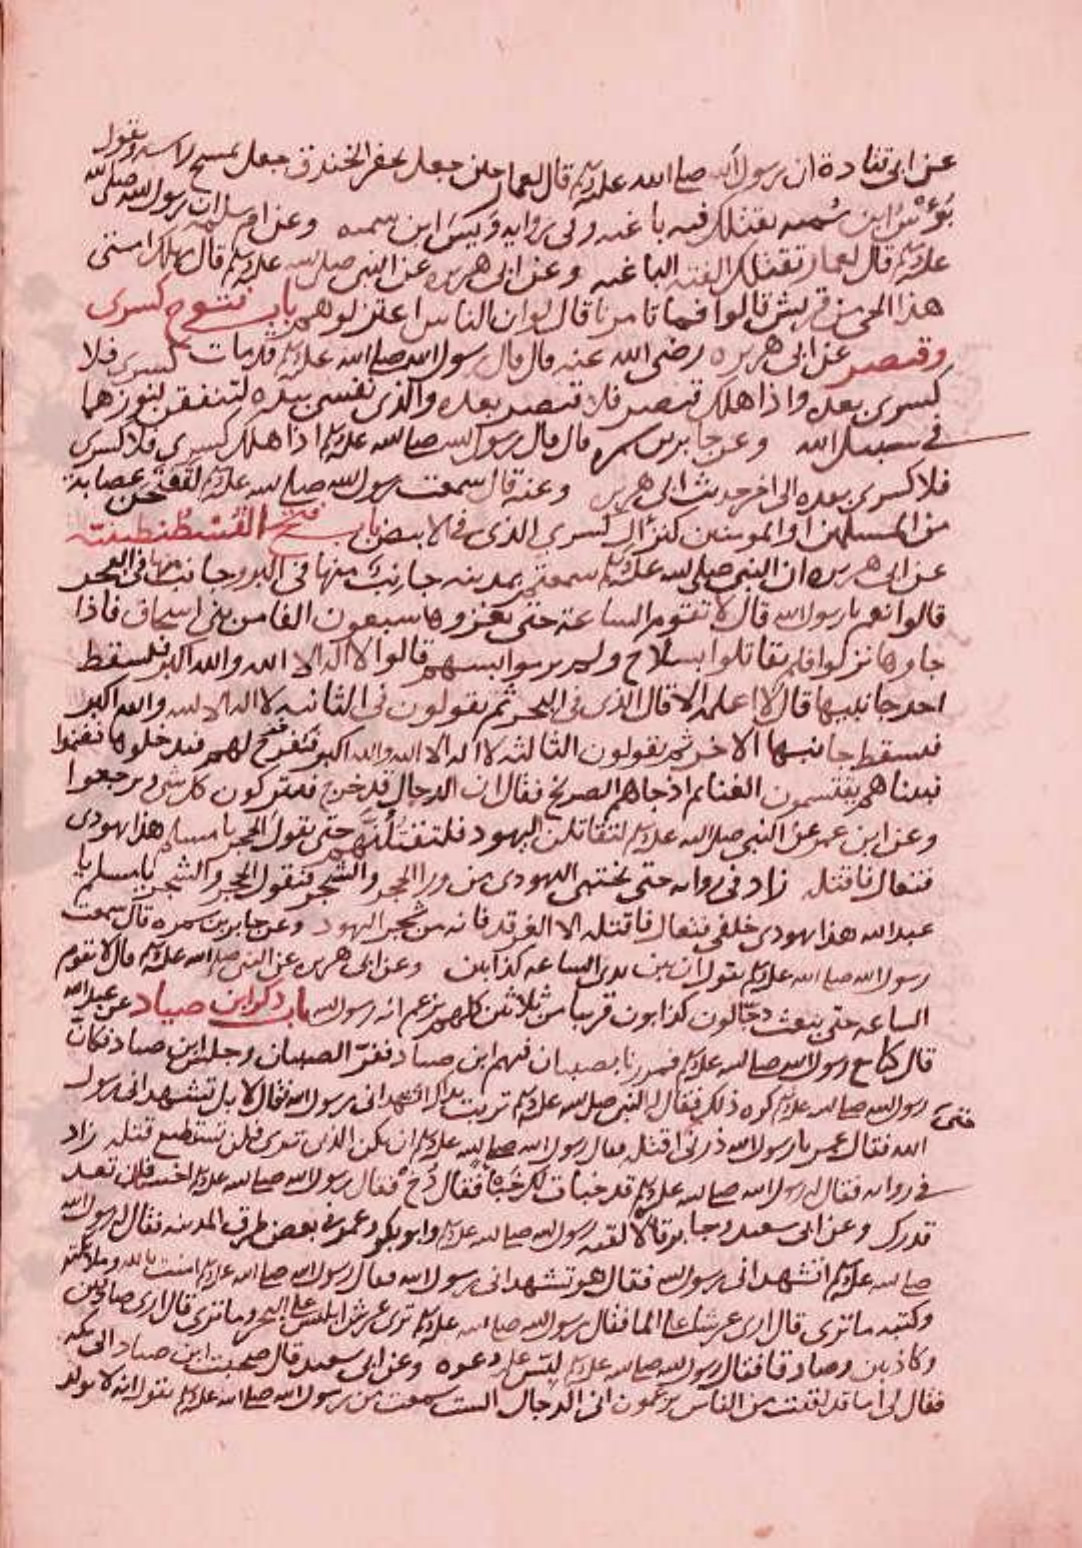 عن ابى قتادة ان رسول الله صلى الله عليه وسلم قال لعمار حين جعل يحفر الخندق جعل يمسح راسه ويقول
بؤس ابن سمية تقتلك فئة باغية وفى رواية ويس ابن سمية وعن ام سلمة ان رسول الله صلى الله
عليه وسلم قال لعمار تقتلك الفئة الباغية وعن ابى هريرة عن النبى صلى الله عليه وسلم قال يهلك امتى
هذا الحى من قريش قالوا فما تامرنا قال لو ان الناس اعتزلوهم باب فتوح كسرى
وقيصر عن ابى هريرة رضى الله عنه قال قال رسول الله صلى الله عليه وسلم قد مات كسرى فلا
كسرى بعده واذا هلك قيصر فلا قيصر بعده والذى نفسى بيده لتنفقن كنوزهما
فى سبيل الله وعن جابر بن سمرة قال قال رسول الله صلى الله عليه وسلم اذا هلك كسرى فلا كسرى
فلا كسرى بعده الى اخر حديث ابى هريرة وعنه قال سمعت رسول الله صلى الله عليه وسلم لتفتحن عصابة
من المسلمين او المومنين كنز ال كسرى الذى فى الابيض باب فتح القسطنطينية
عن ابى هريرة ان النبى صلى الله عليه وسلم سمعتم بمدينة جانب منها فى البر وجانب منها فى البحر
قالوا نعم يا رسول الله قال لا تقوم الساعة حتى يغزوها سبعون الفا من بنى اسحاق فاذا
جاوها نزلوا فلم يقاتلوا بسلاح ولم يرموا بسهم قالوا لا اله الا الله والله اكبر فيسقط
احد جانبيها قال لا اعلمه الا قال الذى فى البحر ثم يقولون فى الثانية لا اله الا الله والله اكبر
فيسقط جانبها الاخر ثم يقولون الثالثة لا اله الا الله والله اكبر فيفرج لهم فيدخلوها فيغنموا
فبينا هم يقتسمون الغنايم اذ جاهم الصريخ فقال ان الدجال قد خرج فيتركون كل شى ويرجعوا
وعن ابن عمر عن النبى صلى الله عليه وسلم لتقاتلن اليهود فلتقتلنهم حتى يقول الحجر يا مسلم هذا يهودى
فتعال فاقتله زاد فى رواية حتى يختبى اليهودى من ورا الحجر والشجر فيقول الحجر والشجر يا مسلم يا
عبد الله هذا يهودى خلفى فتعال فاقتله الا الغرقد فانه من شجر اليهود وعن جابر بن سمرة قال سمعت
رسول الله صلى الله عليه وسلم يقول ان بين يدى الساعة كذابين وعن ابى هريرة عن النبى صلى الله عليه وسلم قال لا تقوم
الساعة حتى يبعث دجالون كذابون قريبا من ثلاثين كلهم يزعم انه رسول الله باب ذكر ابن صياد عن عبد الله
قال كنا مع رسول الله صلى الله عليه وسلم فمررنا بصبيان فيهم ابن صياد ففر الصبيان وجلس ابن صياد فكان
رسول الله صلى الله عليه وسلم كره ذلك فقال له النبى صلى الله عليه وسلم تربت يداك اتشهد انى رسول الله فقال لا بل تشهد انى رسول
الله فقال عمر يا رسول الله ذرنى اقتله فقال رسول الله صلى الله عليه وسلم ان يكن الذى ترى فلن تستطيع قتله زاد
فى رواية فقال له رسول الله صلى الله عليه وسلم قد خبات لك خبأ فقال دخ فقال رسول الله صلى الله عليه وسلم اخسا فلن تعد
قدرك وعن ابى سعيد وجابر قالا لقيه رسول الله صلى الله عليه وسلم وابو بكر وعمر فى بعض طرق المدينة فقال له رسول الله
صلى الله عليه وسلم اتشهد انى رسول الله فقال هو تشهد انى رسول الله فقال رسول الله صلى الله عليه وسلم امنت بالله وملائكته
وكتبه ما ترى قال ارى عرشا على الما فقال رسول الله صلى الله عليه وسلم ترى عرش ابليس على البحر وما ترى قال ارى صادقين
وكاذبين وصادقا فقال رسول الله صلى الله عليه وسلم لبس عليه دعوه وعن ابى سعيد قال صحبت ابن صياد الى مكة
فقال لى اما قد لقيت من الناس يزعمون انى الدجال الست سمعت من رسول الله صلى الله عليه وسلم يقول انه لا يولد